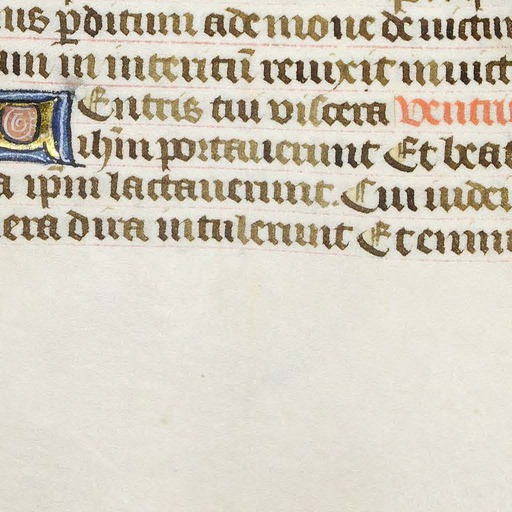 us pditum ade moue de uictu
um in interitū reuixit inuict
Uentris tui viscera Ventris
ihm portauerunt Et beat
a ipm lactauerunt. Cui uider
era dira intulerunt Et